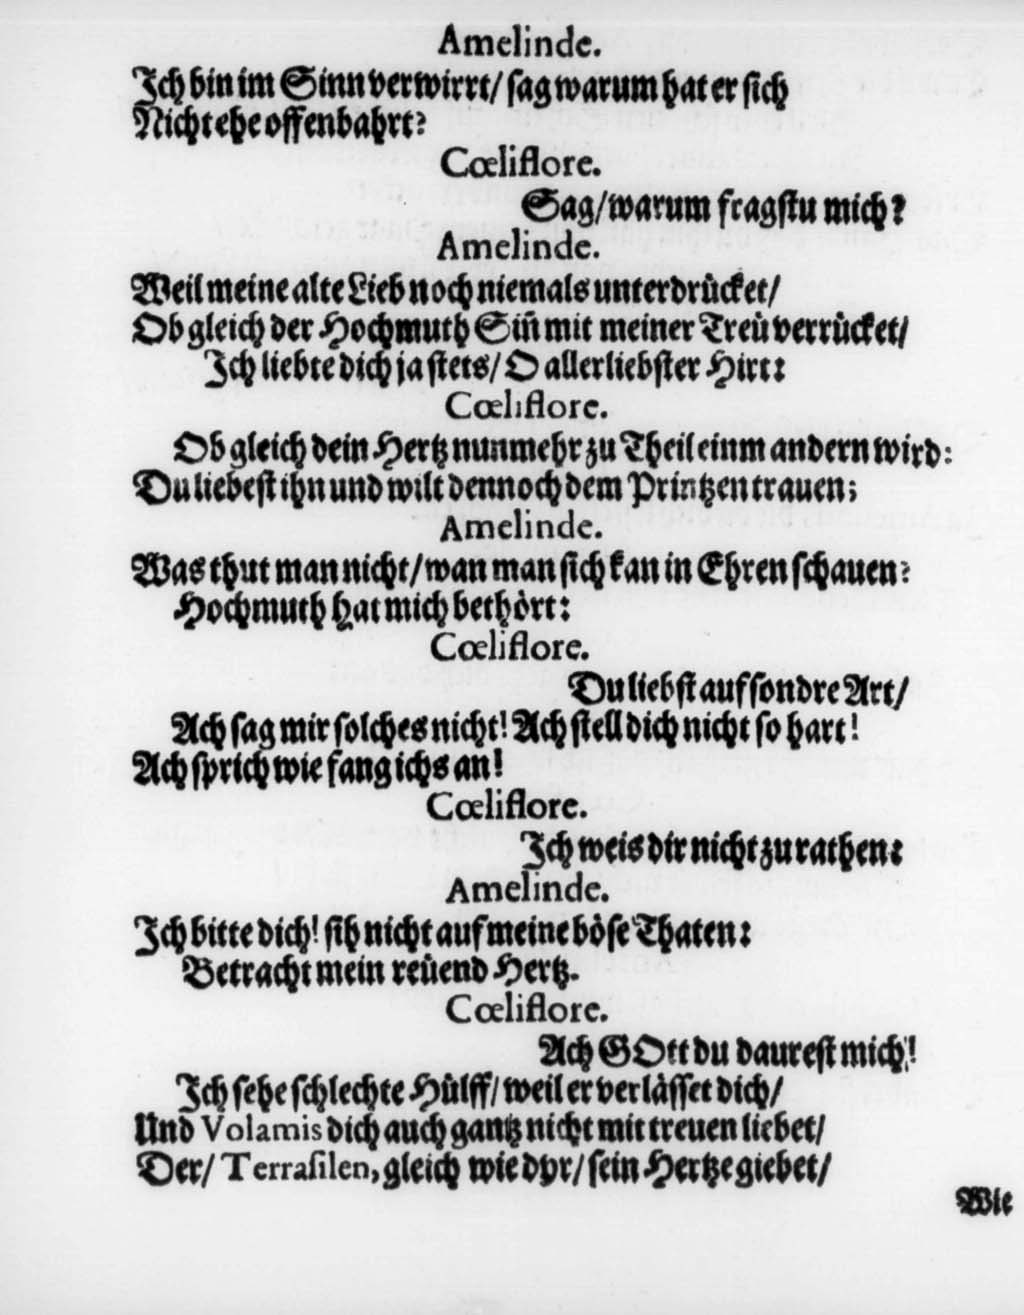 Amelinde.
Ich bin im Sinn verwirrt/ sag warum hat er sich
Nicht ehe offenbahrt?
Cœliflore.
Sag/warum fragstu mich?
Amelinde.
Weil meine alte Lieb noch niemals unterdrücket/
Ob gleich der Hochmuth Siñ mit meiner Treü verrücket/
Ich liebte dich ja stets/ O allerliebster Hirt:
Cœliflore.
Ob gleich dein Hertz nunmehr zu Theil einm andern wird:
Du liebest ihn und wilt dennoch dem Printzen trauen;
Amelinde.
Was thut man nicht/wan man sich kan in Ehren schauen?
Hochmuth hat mich bethört:
Cœliflore.
Du liebst auf sondre Art/
Ach sag mir solches nicht! Ach stell dich nicht so hart!
Ach sprich wie fang ichs an!
Cœliflore.
Ich weis dir nicht zu rathen:
Amelinde.
Ich bitte dich! sih nicht auf meine böse Thaten:
Betracht mein reüend Hertz.
Cœliflore.
Ach GOtt du daurest mich!
Ich sehe schlechte Hülff/ weil er verlässet dich/
Und Volamis dich auch gantz nicht mit treuen liebet/
Der/ Terrasilen, gleich wie dyr/ sein Hertze giebet/
Wie